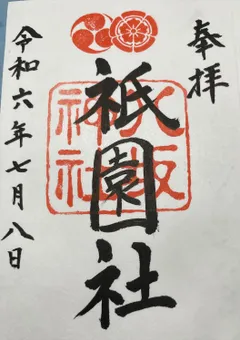 奉拝
祇園社
大阪神社
令和六年七月八日